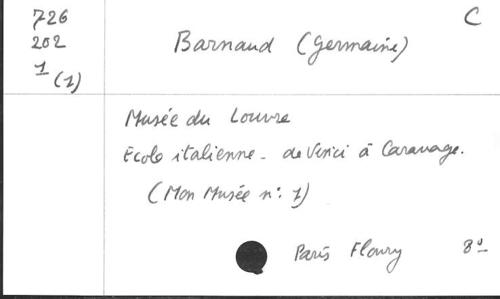 726
202
1
(1)
C
Barnaud (Germaine)
Musée du Louvre
Ecole italienne - de Vinci à Caravage.
(Mon Musée n: 1)
Paris Floury 8º